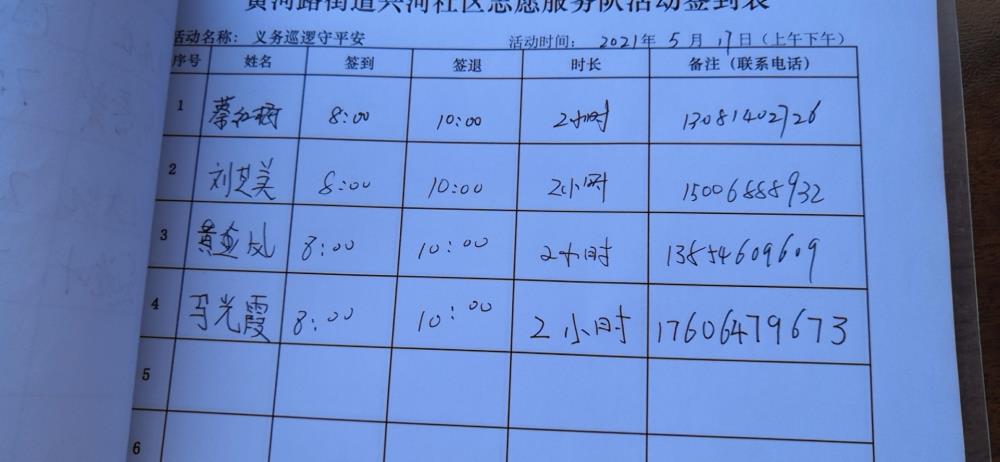 黄河路街道兴河社区志愿服务队活动签到表
活动名称： 义务巡逻守平安 活动时间： 2021年 5月 17日（上午下午）
序号 姓名 签到 签退 时长 备注（联系电话）
1 蔡红梅 8:00 10:00 2小时 13081402726
2 刘芝美 8:00 10:00 2小时 15006888932
3 黄 凤 8:00 10:00 2小时 13854609609
4 马光霞 8:00 10:00 2小时 17606479673
5
6